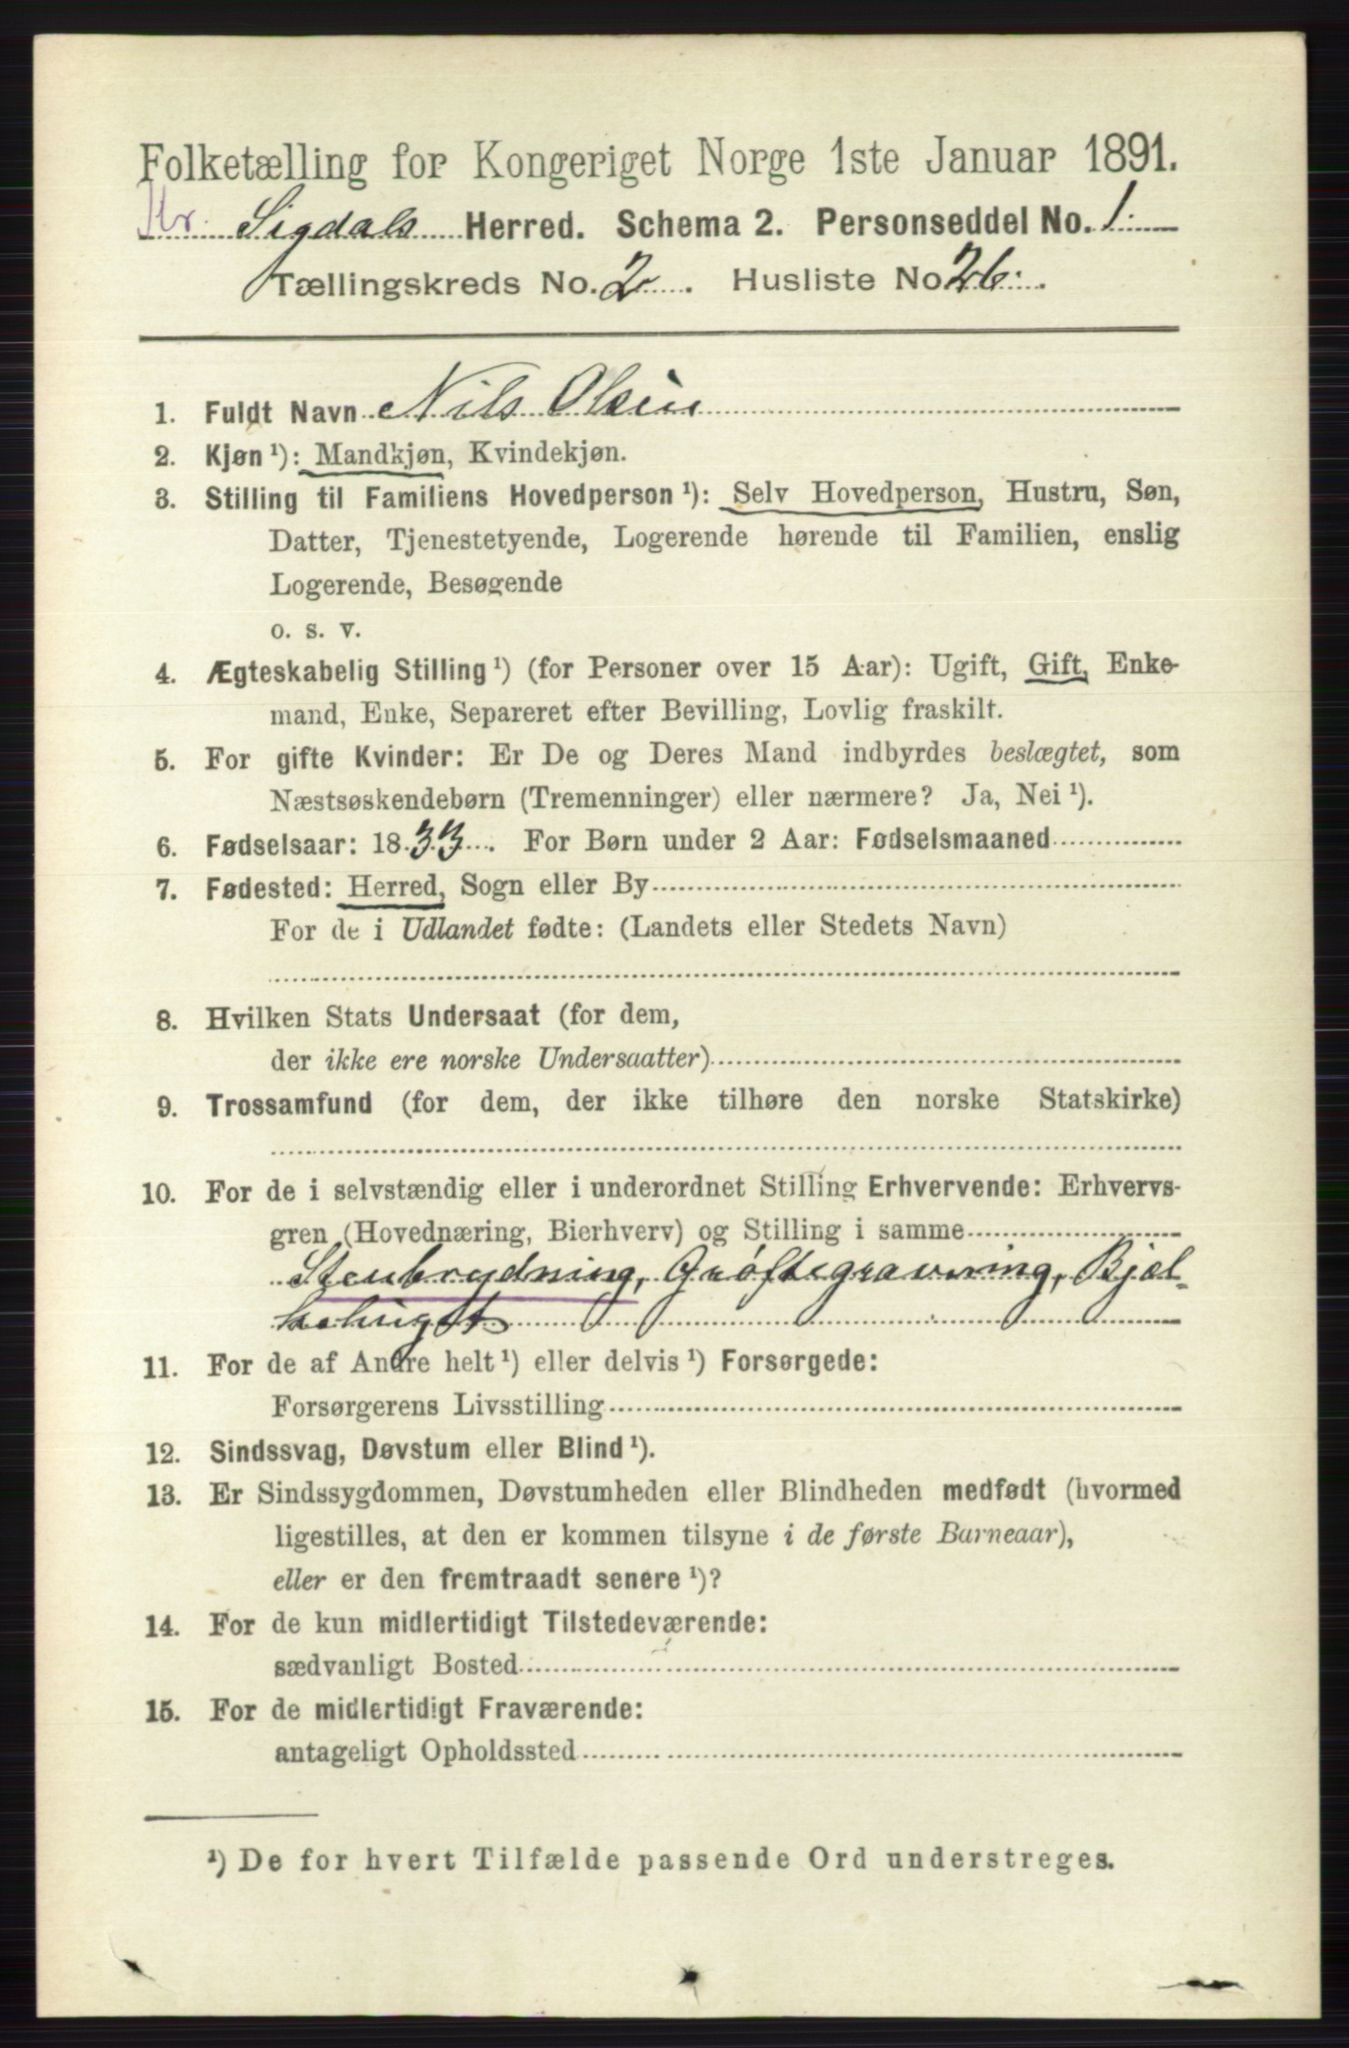 Folketælling for Kongeriget Norge 1ste Januar 1891.
Kr. Sigdals Herred. Schema 2. Personseddel No. 1.
Tællingskreds No. 2. Husliste No 26.
1. Fuldt Navn Nils Olsen
2. Kjøn ¹): Mandkjøn, Kvindekjøn.
3. Stilling til Familiens Hovedperson ¹): Selv Hovedperson, Hustru, Søn,
Datter, Tjenestetyende, Logerende hørende til Familien, enslig
Logerende, Besøgende
o. s. v.
4. Ægteskabelig Stilling ¹) (for Personer over 15 Aar): Ugift, Gift, Enke-
mand, Enke, Separeret efter Bevilling, Lovlig fraskilt.
5. For gifte Kvinder: Er De og Deres Mand indbyrdes beslægtet, som
Næstsøskendebørn (Tremenninger) eller nærmere? Ja, Nei ¹).
6. Fødselsaar: 1833. For Børn under 2 Aar: Fødselsmaaned
7. Fødested: Herred, Sogn eller By
For de i Udlandet fødte: (Landets eller Stedets Navn)
8. Hvilken Stats Undersaat (for dem,
der ikke ere norske Undersaatter)
9. Trossamfund (for dem, der ikke tilhøre den norske Statskirke)
10. For de i selvstændig eller i underordnet Stilling Erhvervende: Erhvervs-
gren (Hovednæring, Bierhverv) og Stilling i samme
Stenbrydning, Grøftegravning, Bjæl-
kehugst
11. For de af Andre helt ¹) eller delvis ¹) Forsørgede:
Forsørgerens Livsstilling
12. Sindssvag, Døvstum eller Blind ¹).
13. Er Sindssygdommen, Døvstumheden eller Blindheden medfødt (hvormed
ligestilles, at den er kommen tilsyne i de første Barneaar),
eller er den fremtraadt senere ¹)?
14. For de kun midlertidigt Tilstedeværende:
sædvanligt Bosted
15. For de midlertidigt Fraværende:
antageligt Opholdssted
¹) De for hvert Tilfælde passende Ord understreges.